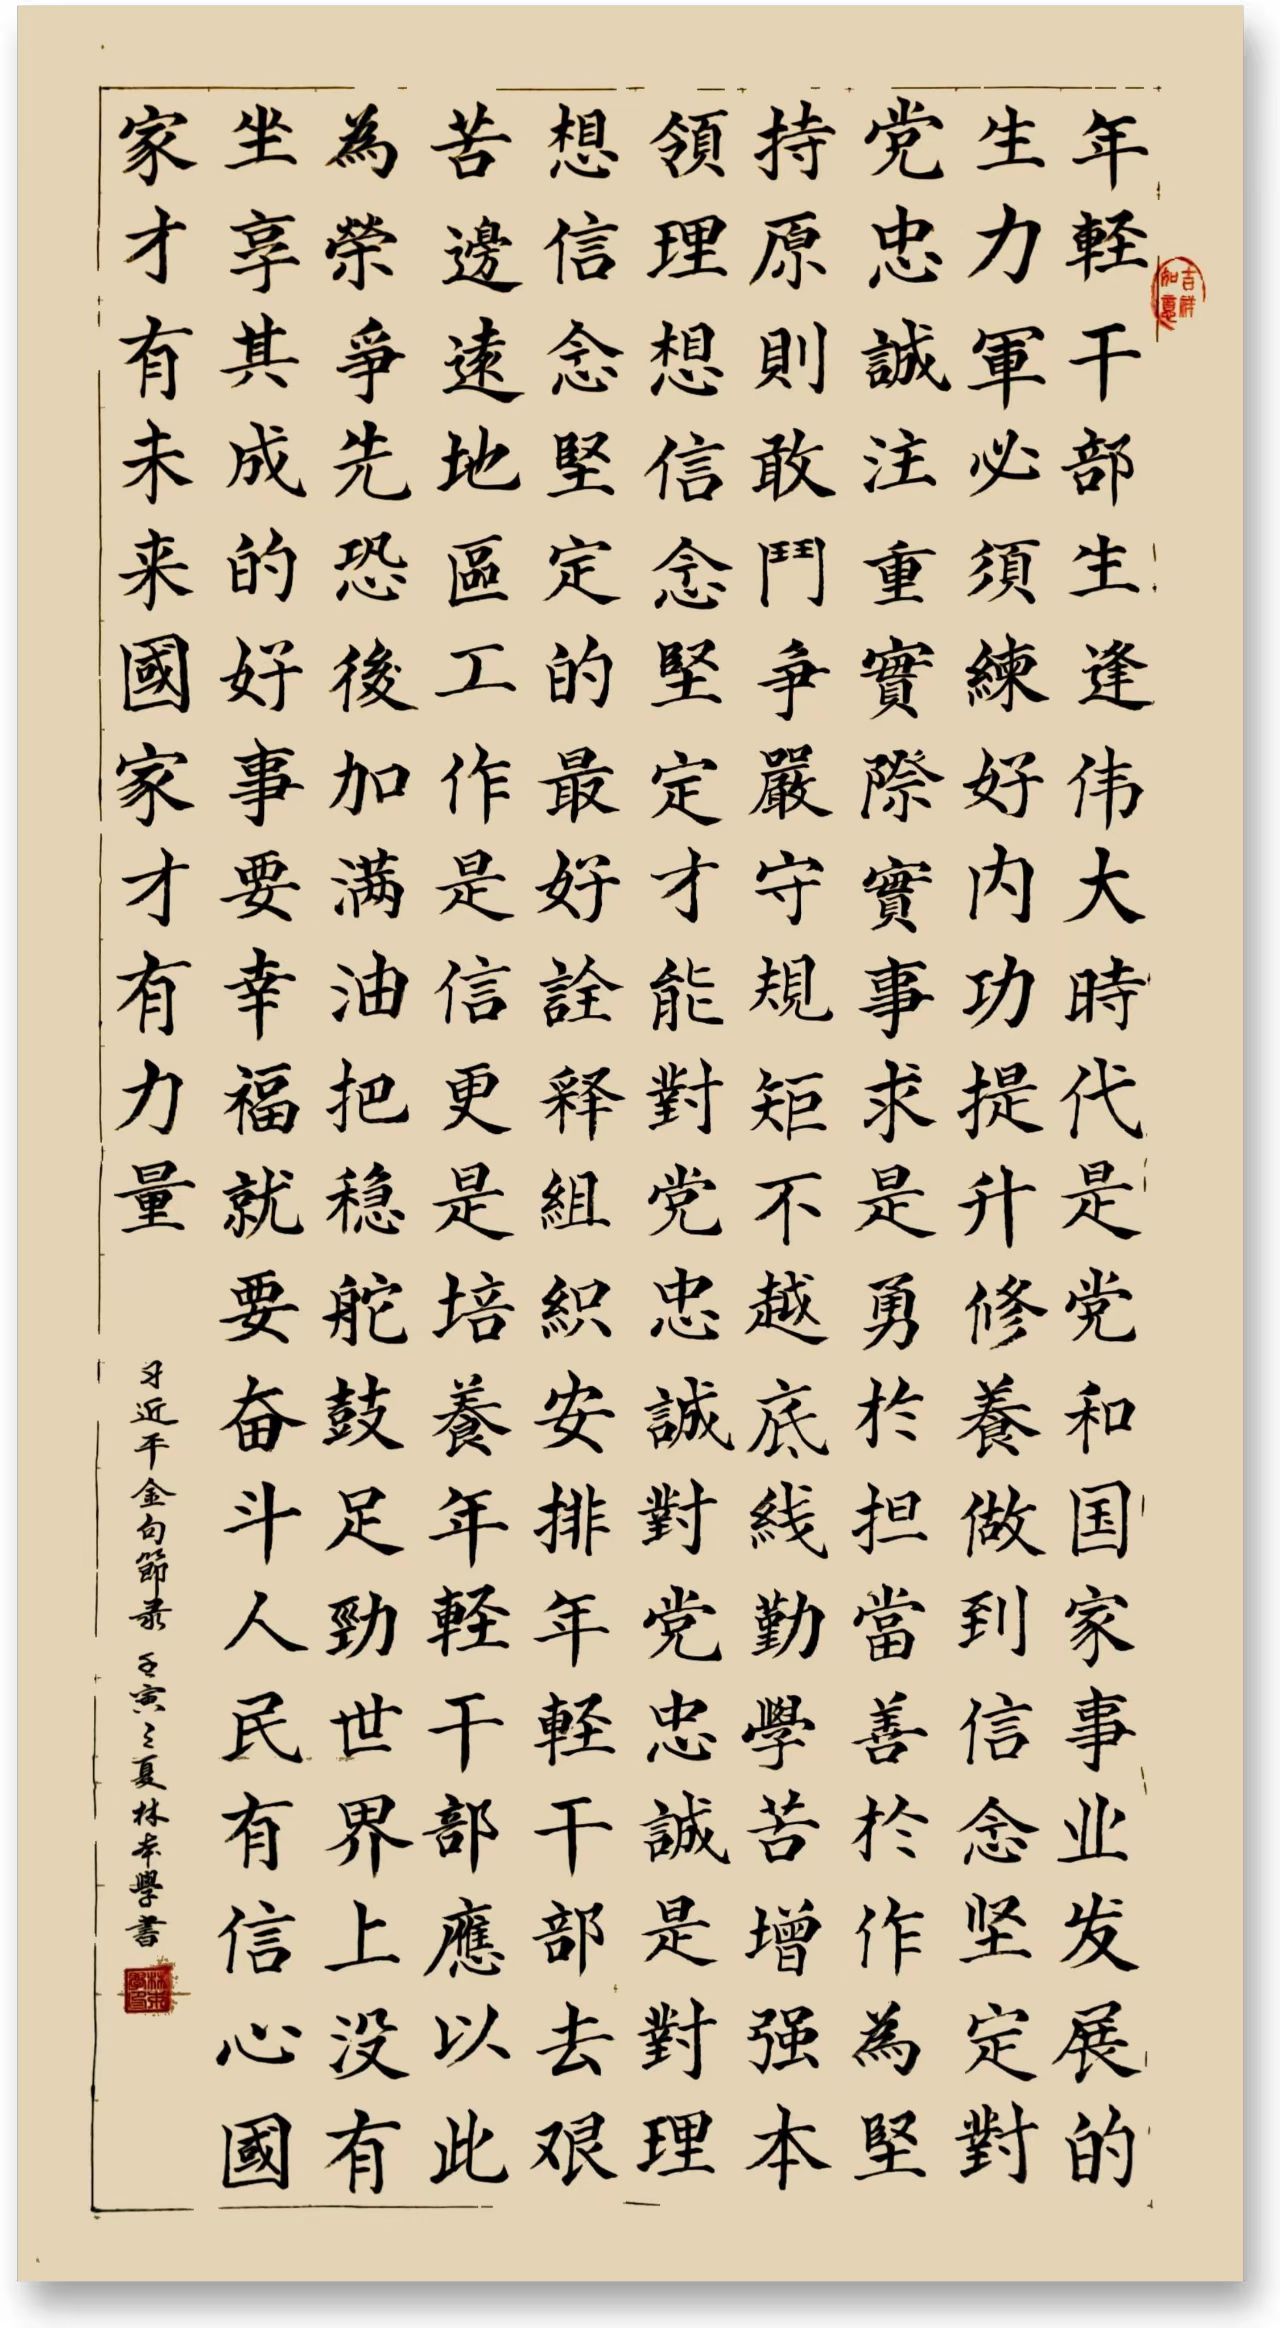 年軽干部生逢伟大時代是党和国家事业发展的
生力軍必須練好内功提升修養做到信念坚定對
党忠誠注重實際實事求是勇於担當善於作為堅
持原則敢鬥争嚴守規矩不越底线勤學苦增强本
領理想信念堅定才能對党忠誠對党忠誠是對理
想信念堅定的最好詮释組織安排年軽干部去艰
苦邊遠地區工作是信更是培養年軽干部應以此
為榮爭先恐後加满油把稳舵鼓足勁世界上没有
坐享其成的好事要幸福就要奋斗人民有信心國
家才有未来國家才有力量
习近平金句節录 壬寅之夏林本學書
吉祥如意